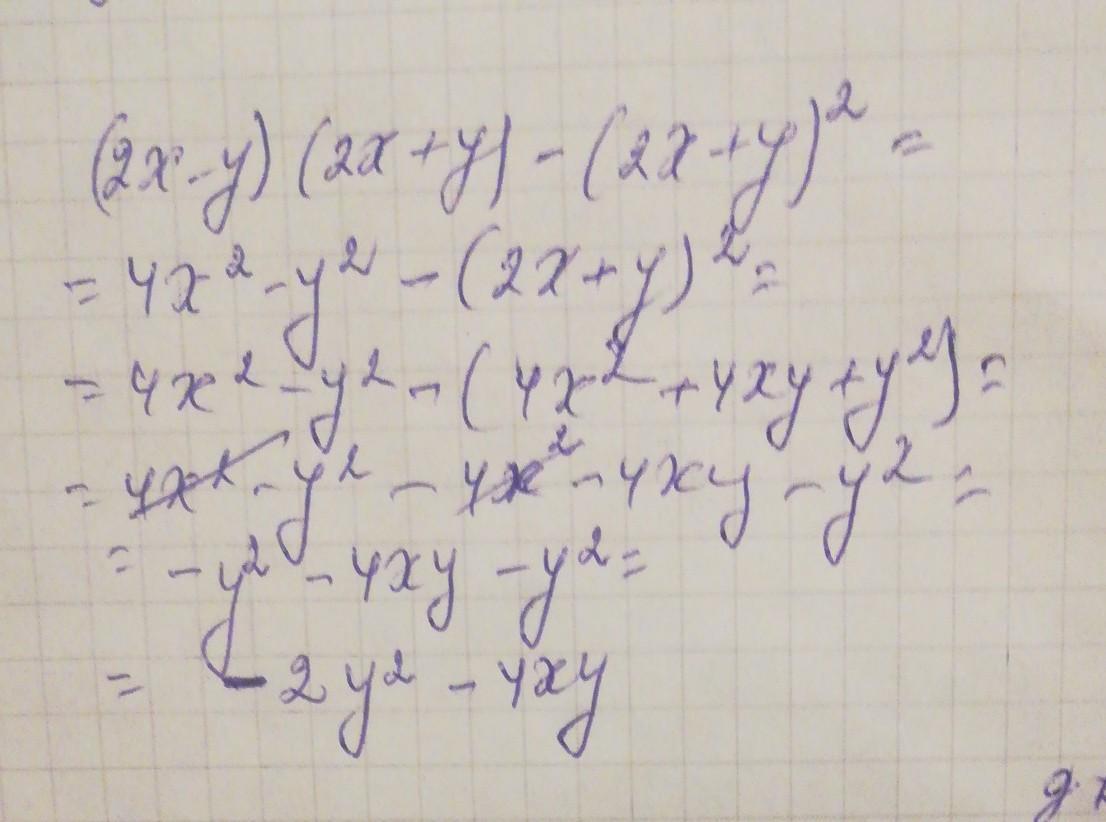 (2x-y)(2x+y)-(2x+y)² =
= 4x²-y² -(2x+y)² =
= 4x²-y²-(4x²+4xy+y²) =
= 4x²-y² - 4x² -4xy -y² =
= -y² -4xy -y² =
= -2y² -4xy